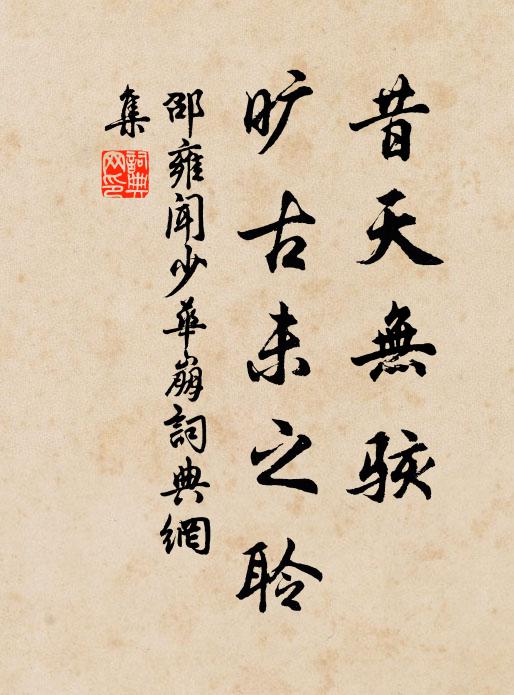 昔天無駭
旷古未之聆
邵雍聞少華崩詞典網
集
詞典
网印